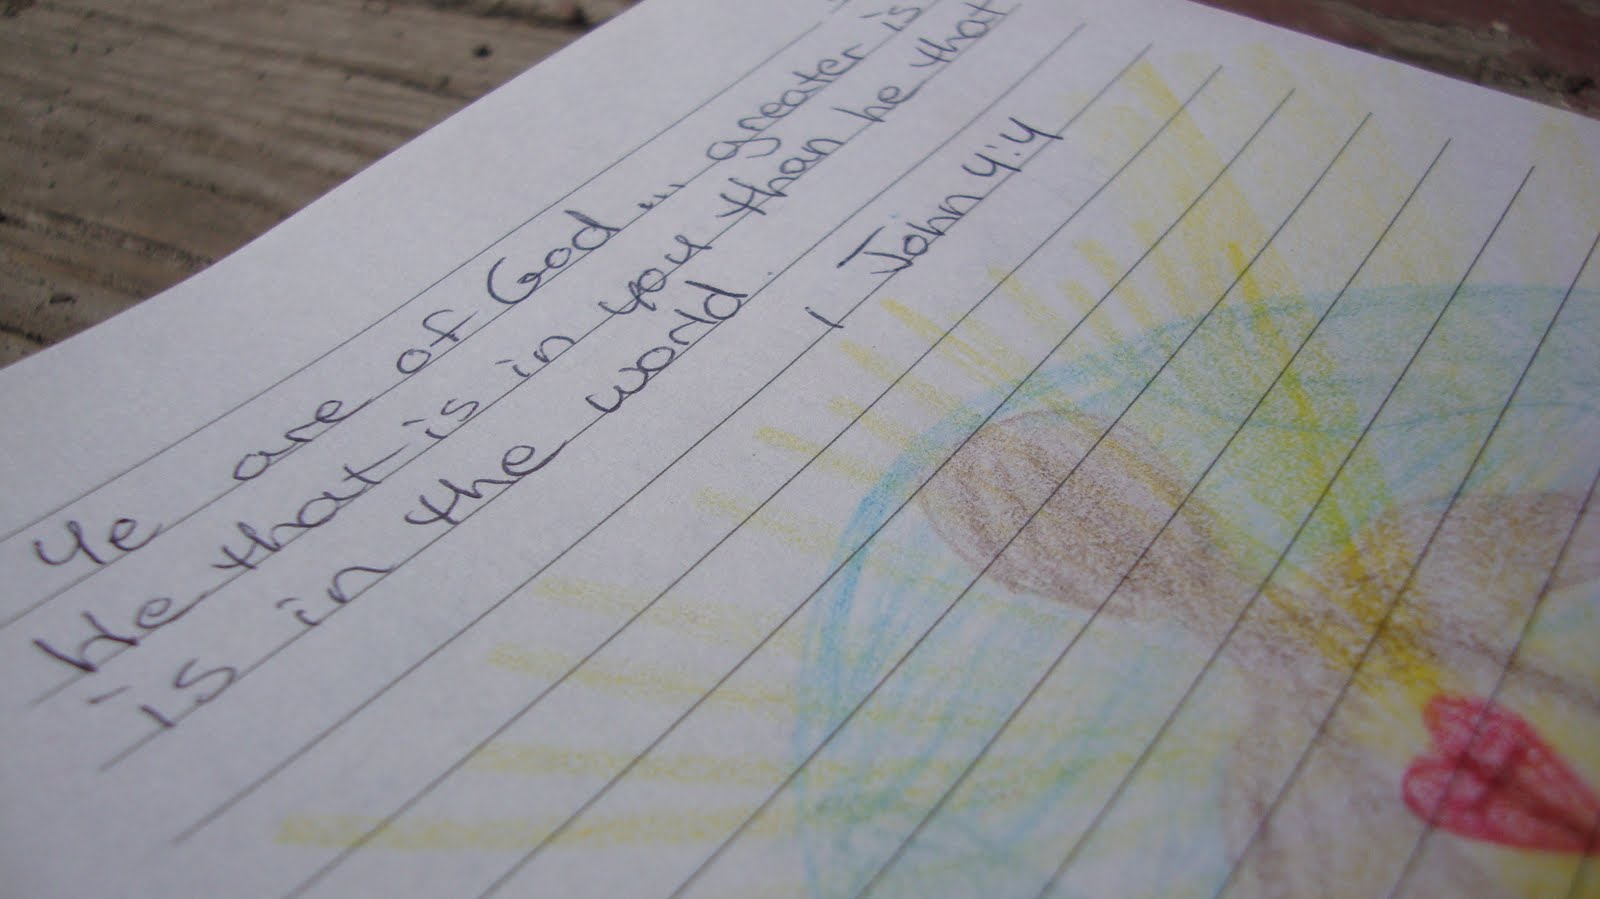 Ye are of God ... greater is
He that is in you than he that
is in the world.
1 John 4:4